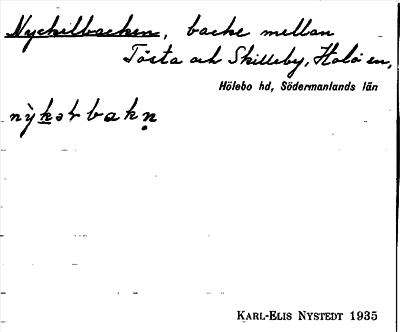 Nyckelbacken, backe mellan
Tösta och Skilleby, Hölö sn,
Hölebo hd, Södermanlands län
KARL-ELIS NYSTEDT 1935